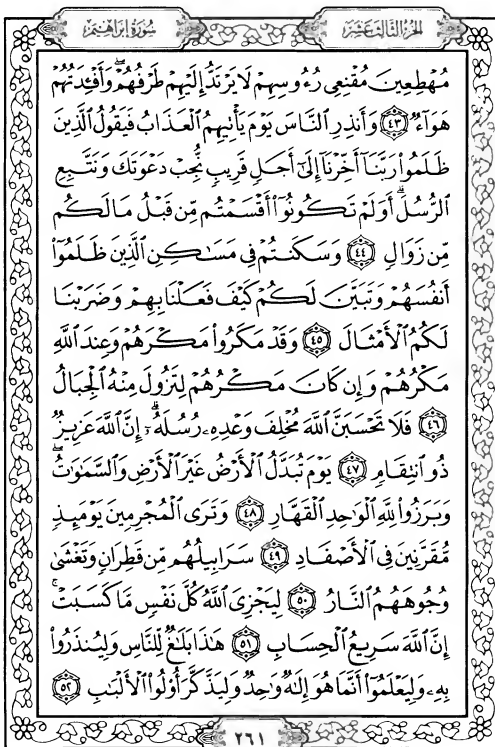 سُورَةُ إِبْرَاهِيم الجُزْءُ الثَّالِثَ عَشَرَ
مُهْطِعِينَ مُقْنِعِى رُءُوسِهِمْ لَا يَرْتَدُّ إِلَيْهِمْ طَرْفُهُمْ ۖ وَأَفْـِٔدَتُهُمْ
هَوَآءٌ ﴿٤٣﴾ وَأَنذِرِ ٱلنَّاسَ يَوْمَ يَأْتِيهِمُ ٱلْعَذَابُ فَيَقُولُ ٱلَّذِينَ
ظَلَمُوا۟ رَبَّنَآ أَخِّرْنَآ إِلَىٰٓ أَجَلٍ قَرِيبٍ نُّجِبْ دَعْوَتَكَ وَنَتَّبِعِ
ٱلرُّسُلَ ۗ أَوَلَمْ تَكُونُوٓا۟ أَقْسَمْتُم مِّن قَبْلُ مَا لَكُم
مِّن زَوَالٍ ﴿٤٤﴾ وَسَكَنتُمْ فِى مَسَـٰكِنِ ٱلَّذِينَ ظَلَمُوٓا۟
أَنفُسَهُمْ وَتَبَيَّنَ لَكُمْ كَيْفَ فَعَلْنَا بِهِمْ وَضَرَبْنَا
لَكُمُ ٱلْأَمْثَالَ ﴿٤٥﴾ وَقَدْ مَكَرُوا۟ مَكْرَهُمْ وَعِندَ ٱللَّهِ
مَكْرُهُمْ وَإِن كَانَ مَكْرُهُمْ لِتَزُولَ مِنْهُ ٱلْجِبَالُ
﴿٤٦﴾ فَلَا تَحْسَبَنَّ ٱللَّهَ مُخْلِفَ وَعْدِهِۦ رُسُلَهُۥٓ ۗ إِنَّ ٱللَّهَ عَزِيزٌ
ذُو ٱنتِقَامٍ ﴿٤٧﴾ يَوْمَ تُبَدَّلُ ٱلْأَرْضُ غَيْرَ ٱلْأَرْضِ وَٱلسَّمَـٰوَٰتُ ۖ
وَبَرَزُوا۟ لِلَّهِ ٱلْوَٰحِدِ ٱلْقَهَّارِ ﴿٤٨﴾ وَتَرَى ٱلْمُجْرِمِينَ يَوْمَئِذٍ
مُّقَرَّنِينَ فِى ٱلْأَصْفَادِ ﴿٤٩﴾ سَرَابِيلُهُم مِّن قَطِرَانٍ وَتَغْشَىٰ
وُجُوهَهُمُ ٱلنَّارُ ﴿٥٠﴾ لِيَجْزِىَ ٱللَّهُ كُلَّ نَفْسٍ مَّا كَسَبَتْ ۚ
إِنَّ ٱللَّهَ سَرِيعُ ٱلْحِسَابِ ﴿٥١﴾ هَـٰذَا بَلَـٰغٌ لِّلنَّاسِ وَلِيُنذَرُوا۟
بِهِۦ وَلِيَعْلَمُوٓا۟ أَنَّمَا هُوَ إِلَـٰهٌ وَٰحِدٌ وَلِيَذَّكَّرَ أُو۟لُوا۟ ٱلْأَلْبَـٰبِ ﴿٥٢﴾
٢٦١